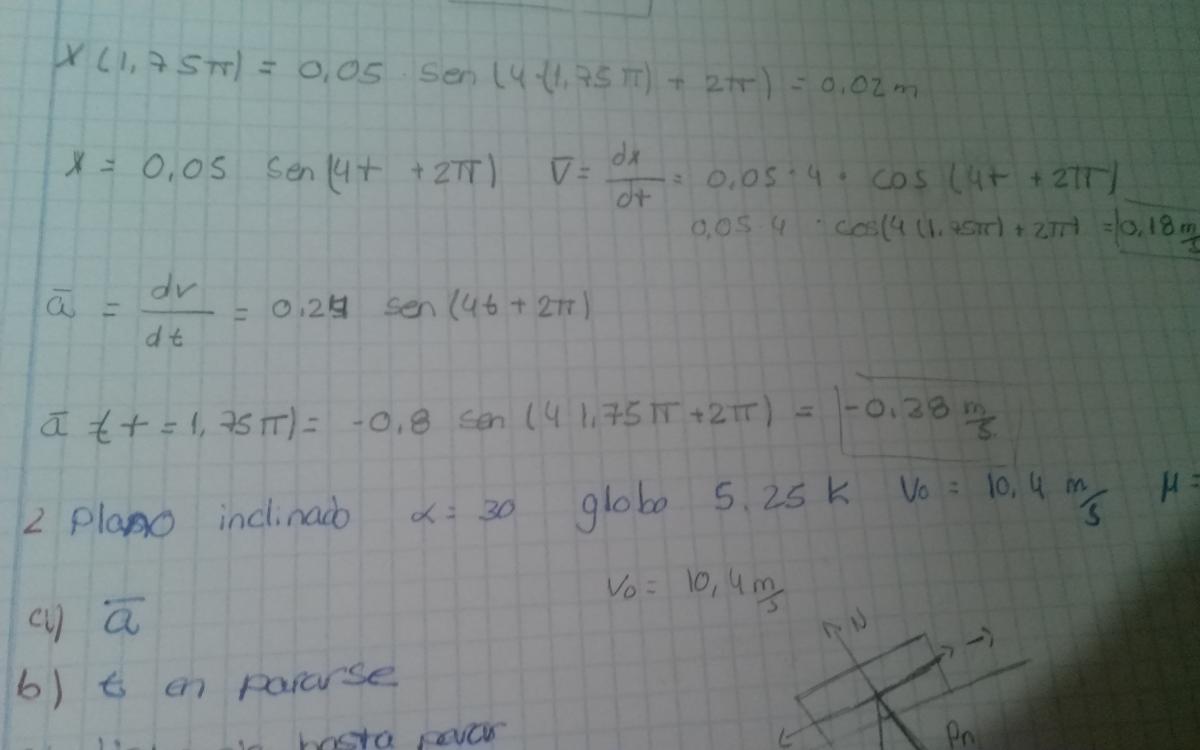 x (1,75π) = 0,05 · sen (4·(1,75π) + 2π) = 0,02 m
x = 0,05 sen (4t + 2π) v̄ = dx/dt = 0,05 · 4 · cos (4t + 2π)
0,05·4 · cos(4(1,75π) + 2π) = 0,18 m/s
ā = dv/dt = 0.2 sen (4t + 2π)
ā (t = 1,75π) = -0,8 sen (4 1,75π + 2π) = -0.38 m/s
2 Plano inclinado α = 30 globo 5.25 K V₀ = 10,4 m/s μ =
V₀ = 10,4 m/s
a) ā
N
b) t en pararse
Pn
hasta parar